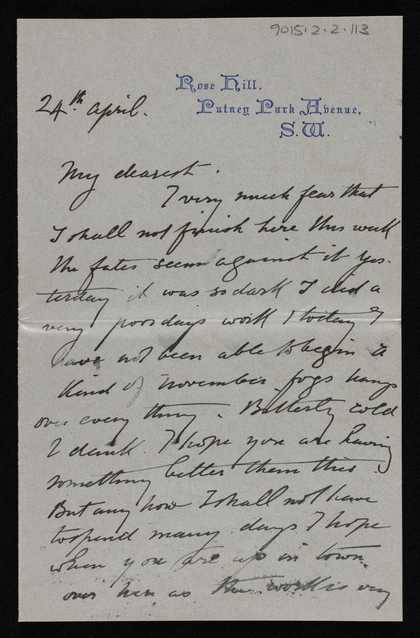 9015.2.2.113
Rose Hill.
Putney Park Avenue.
S.W.
24th April.
My dearest.
I very much fear that
I shall not finish here this week
the fates seem against it yes-
terday it was so dark I did a
very poor days work & today I
have not been able to begin a
kind of November fogs hangs
over every thing. Bitterly cold
& dank. I hope you are having
something better than this.
But any how I shall not have
to spend many days I hope
when you are up in town
over here as the work is very